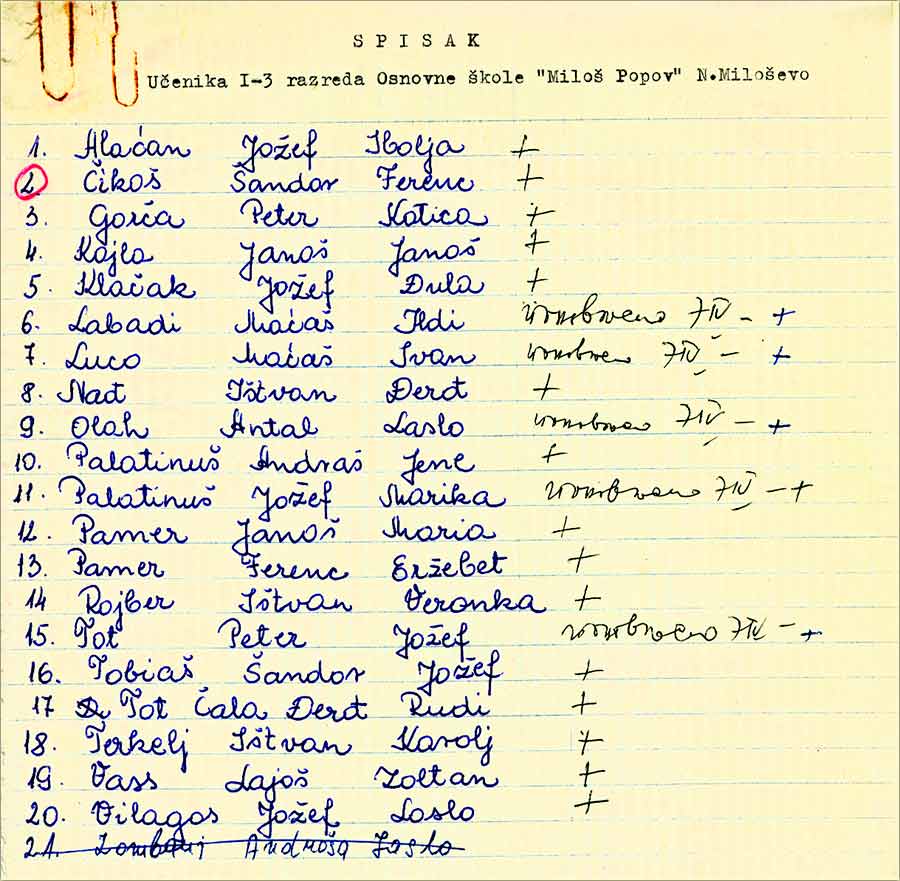 SPISAK
Učenika I-3 razreda Osnovne škole "Miloš Popov" N.Miloševo
1. Alaćan Jožef Ibolja +
2 Čikoš Šandor Ferenc +
3. Gorča Peter Katica +
4. Kajla Janoš Janoš +
5. Klačak Jožef Đula +
6. Labadi Maćaš Ildi 7IV - +
7. Luco Maćaš Ivan 7IV - +
8. Nađ Ištvan Đerđ +
9. Olah Antal Laslo 7IV - +
10. Palatinuš Andraš Jene +
11. Palatinuš Jožef Marika 7IV - +
12. Pamer Janoš Maria +
13. Pamer Ferenc Eržebet +
14 Rojber Ištvan Veronka +
15. Tot Peter Jožef 7IV - +
16. Tobiaš Šandor Jožef +
17 Tot Čala Đerđ Rudi +
18. Terkelj Ištvan Karolj +
19. Vass Lajoš Zoltan +
20. Vilagos Jožef Laslo +
21. Andraša Laslo